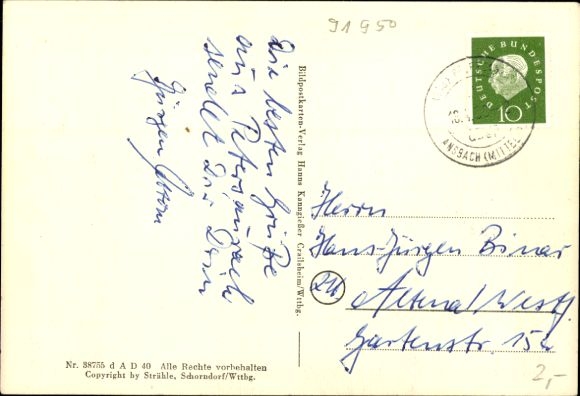 91950
Die besten Grüße
aus Petersaurach
sendet Dir Dein
Jürgen
Bildpostkarten-Verlag Hanns Kanngießer Crailsheim/Wttbg.
DEUTSCHE BUNDESPOST
10
ANSBACH (MITTEL
Herrn
Hans-Jürgen Binar
Altena/Westf
Gartenstr. 15
Nr. 38755 d A D 40 Alle Rechte vorbehalten
Copyright by Strähle, Schorndorf/Wttbg.
2,-